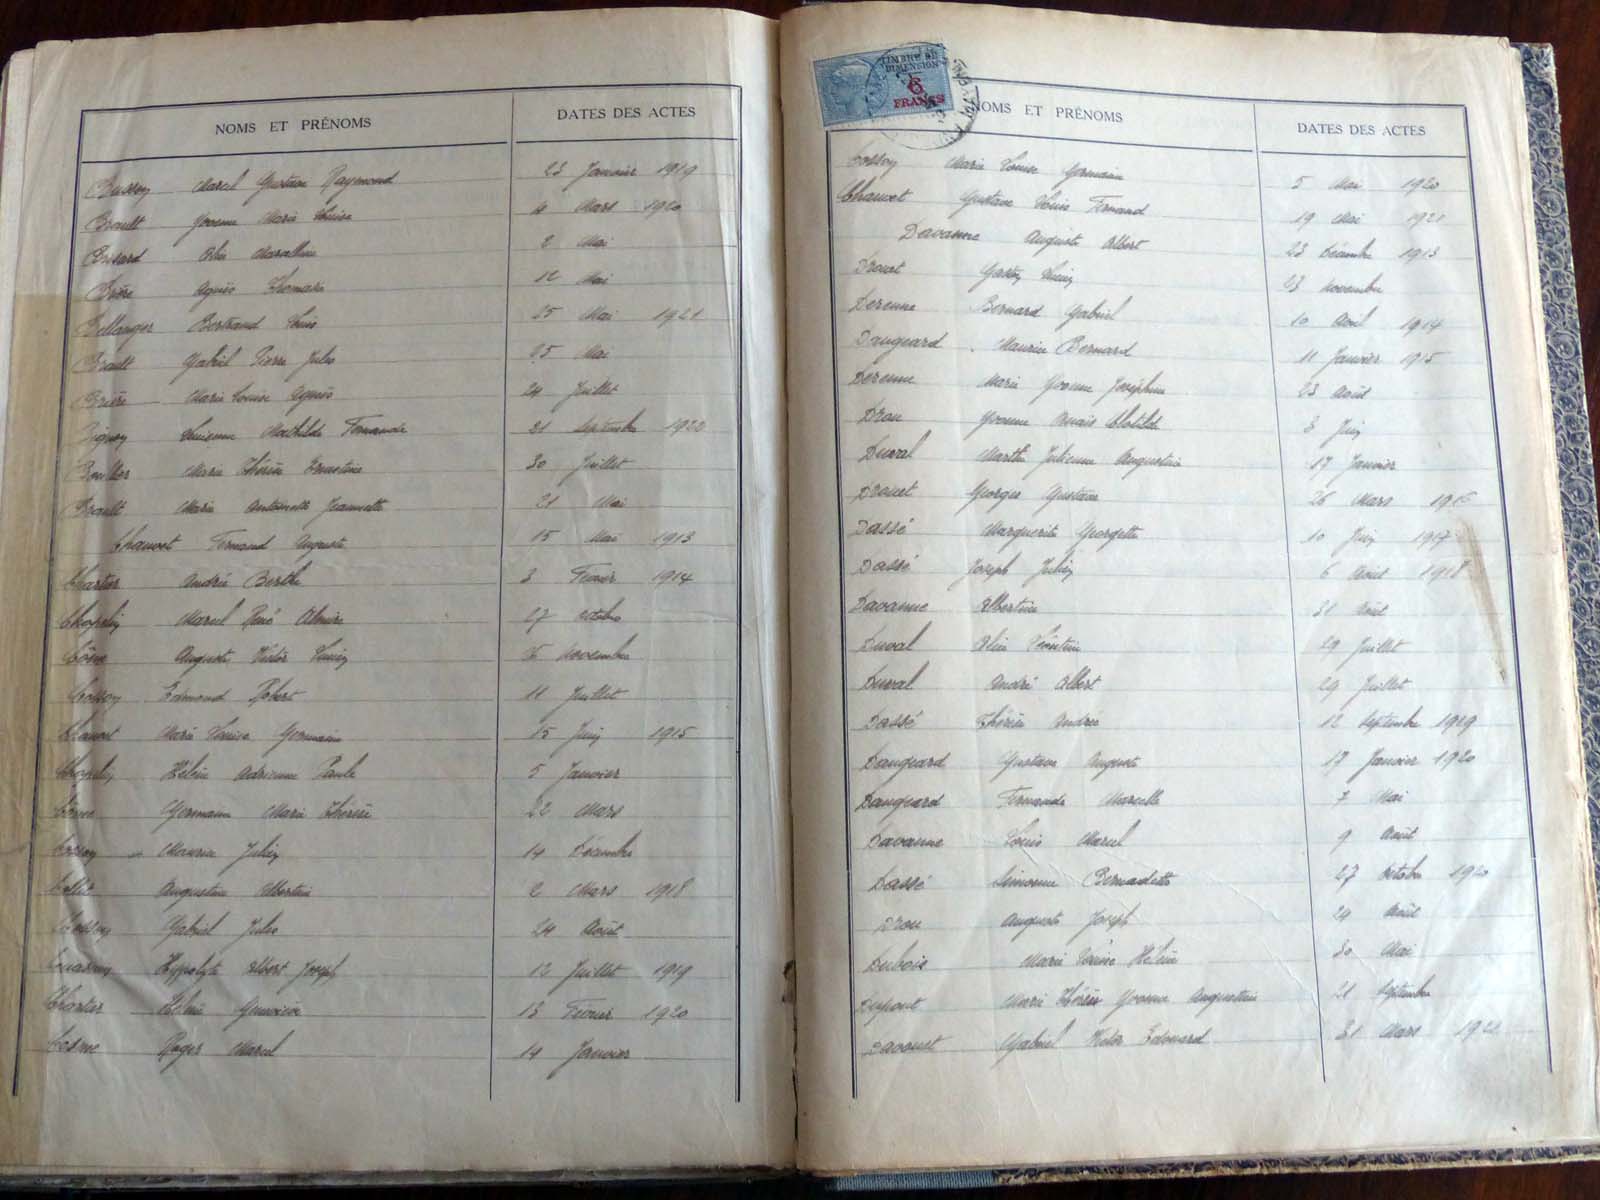 NOMS ET PRÉNOMS DATES DES ACTES
Marcel Gustave Raymond 23 Janvier 1919
Brault Yvonne Marie Louise 4 Mars 1920
Marcelline 2 Mai
Brière Agnès 12 Mai
Bellanger Bertrand Louis 25 Mai 1921
Brault Gabriel Pierre Jules 25 Mai
Brière Marie Louise Agnès 24 Juillet
Lucienne Mathilde Fernande 21 Septembre 1922
Marie Thérèse Ernestine 30 Juillet
Brault Marie Antoinette Jeannette 21 Mai
Chauvet Fernand Auguste 15 Mai 1913
Chartier Andrée Berthe 3 Février 1914
Marcel René 27 Octobre
Côme Auguste Victor Lucien Novembre
Cossoy Edmond Robert 11 Juillet
Chauvet Marie Louise Germaine 15 Juin 1915
Hélène Adrienne Paule 5 Janvier
Côme Germaine Marie Thérèse 22 Mars
Maurice Julien 14 Décembre
Augustine Albertine 2 Mars 1918
Cossoy Gabriel Jules 24 Août
Hypolyte Albert Joseph 12 Juillet 1919
Hélène Geneviève 13 Février 1920
Cosme Roger Marcel 14 Janvier
TIMBRE DE DIMENSION
6
FRANCS
NOMS ET PRÉNOMS DATES DES ACTES
Cossoy Marie Louise Germaine 5 Mai 1920
Chauvet Gustave Louis Fernand 19 Mai 1921
Davanne Auguste Albert 23 Décembre 1913
Drouet Gaston Lucien 23 Novembre
Derenne Bernard Gabriel 10 Avril 1914
Dangeard Maurice Bernard 11 Janvier 1915
Derenne Marie Yvonne Joséphine 23 Août
Drou Yvonne Anaïs Clotilde 8 Juin
Duval Marthe Julienne Augustine 17 Janvier
Drouet Georges Gustave 26 Mars 1916
Dassé Marguerite Georgette 10 Juin 1917
Dassé Joseph Julien 6 Août 1918
Davanne Albertine 31 Août
Duval Léontine 29 Juillet
Duval André Albert 29 Juillet
Dassé Thérèse Andrée 12 Septembre 1919
Dangeard Gustave Auguste 17 Janvier 1920
Dangeard Fernande Marcelle 7 Mai
Davanne Louis Marcel 9 Août
Dassé Simonne Bernadette 27 Octobre 1920
Drou Auguste Joseph 29 Août
Dubois Marie Louise Hélène 30 Mai
Dupont Marie Thérèse Yvonne Augustine 21 Septembre
Gabriel Victor Edouard 31 Mars